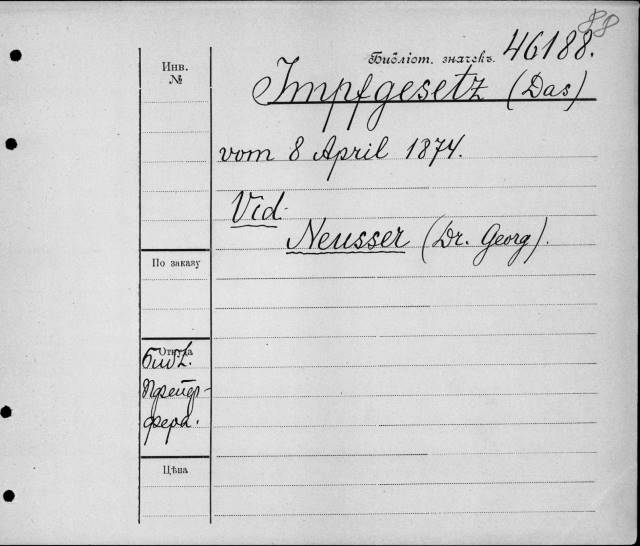 88
Инв.
№
Библіот. значекъ. 46188.
Impfgesetz (Das)
vom 8 April 1874.
Vid.
Neusser (Dr. Georg).
По заказу
Откуда
Библ.
Пфейф-
фера.
Цѣна